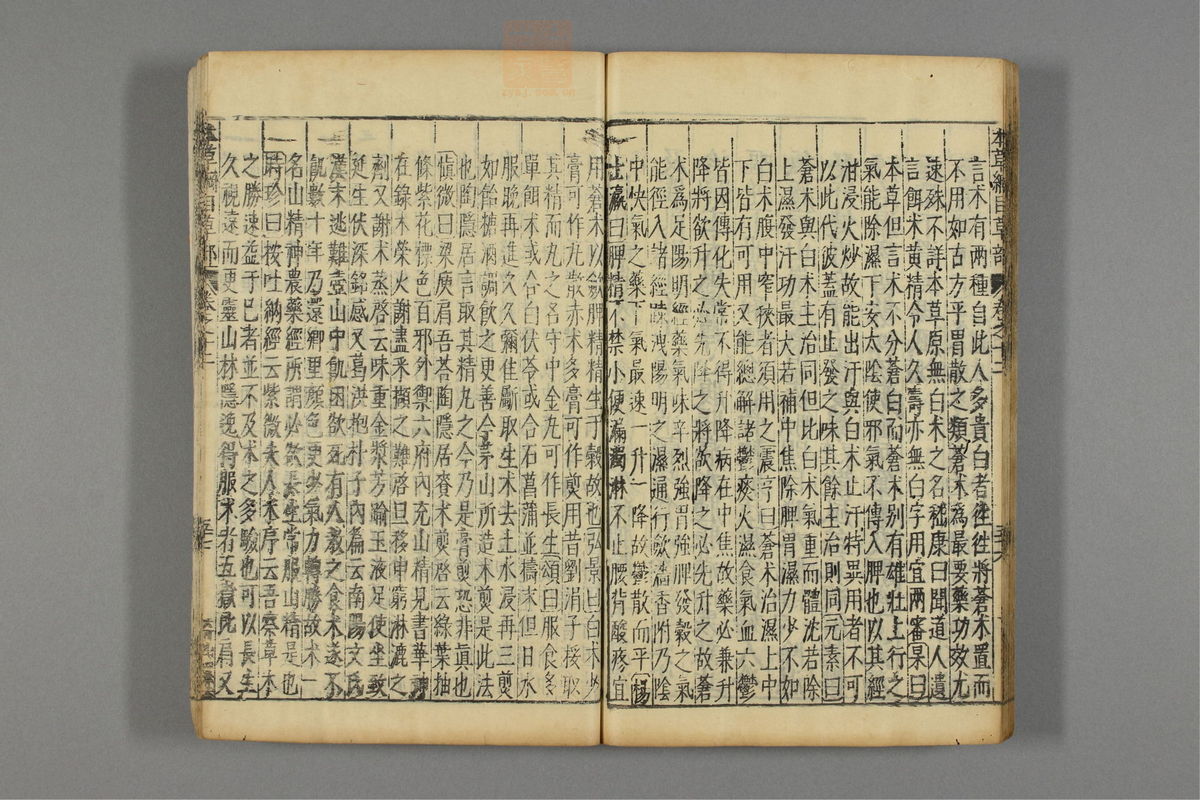 本草綱目草部 卷之十二
言术有兩種自此人多貴白者往往將蒼术置而
不用如古方平胃散之類蒼术爲最要藥功效尤
速殊不詳本草原無白术之名嵇康曰聞道人遺
言餌术黄精令人久壽亦無白字用宜兩審杲曰
本草但言术不分蒼白而蒼术别有雄壯上行之
氣能除濕下安太陰使邪氣不傳入脾也以其經
泔浸火炒故能出汗與白术止汗特異用者不可
以此代彼蓋有止發之味其餘主治則同元素曰
蒼术與白术主治同但比白术氣重而體沈若除
上濕發汗功最大若補中焦除脾胃濕力少不如
白术腹中窄狹者須用之震亨曰蒼术治濕上中
下皆有可用又能總解諸鬱痰火濕食氣血六鬱
皆因傳化失常不得升降病在中焦故藥必兼升
降將欲升之必先降之將欲降之必先升之故蒼
术爲足陽明經藥氣味辛烈強胃強脾發穀之氣
能徑入諸經疎洩陽明之濕通行斂濇香附乃陰
中快氣之藥下氣最速一升一降故鬱散而平楊
士瀛曰脾精不禁小便漏濁淋不止腰背酸疼宜
用蒼术以斂脾精精生于穀故也弘景曰白术少
膏可作丸散赤术多膏可作煎用昔劉涓子挼取
其精而丸之名守中金丸可作長生頌曰服食多
單餌术或合白伏苓或合石菖蒲並擣末旦日水
服晚再進久久彌佳斸取生术去土水浸再三煎
如飴糖酒調飲之更善今茅山所造术煎是此法
也陶隱居言取其精丸之今乃是膏煎恐非真也
愼微曰梁庾肩吾荅陶隱居賚术煎啓云綠葉抽
條紫花標色百邪外禦六府內充山精見書華神
在錄术榮火謝盡采擷之難啓旦移申窮淋漉之
劑又謝术蒸啓云味重金漿芳踰玉液足使坐致
延生伏深銘感又葛洪抱朴子內篇云南陽文氏
漢末逃難壺山中飢困欲死有人教之食术遂不
飢數十年乃還鄉里顔色更少氣力轉勝故术一
名山精神農藥經所謂必欲長生常服山精是也
時珍曰按吐納經云紫微夫人术序云吾察草木
之勝速益于已者並不及术之多驗也可以長生
久視遠而更靈山林隱逸得服术者五嶽比肩又
本草綱目草部 卷之十二